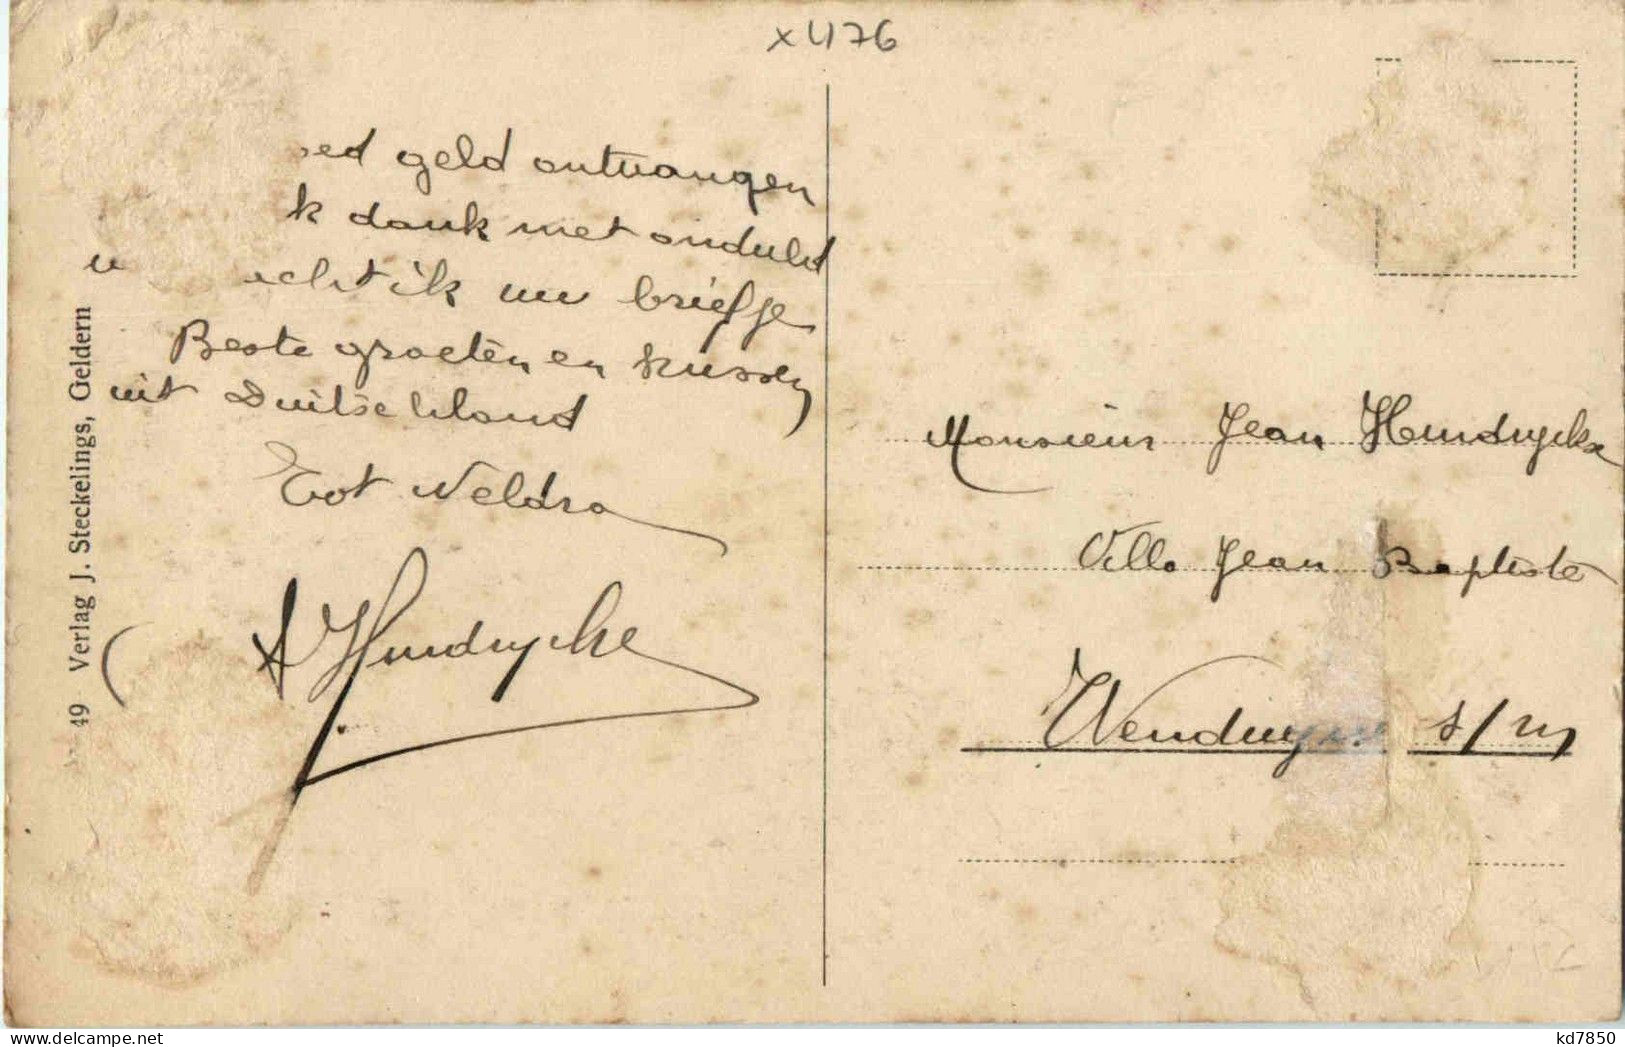 x476
oed geld ontvangen
k dank met onduld
echt ik uw briefje
Beste groeten en kussen
uit Duitschland
Tot Weldra
A Hendryckx
49 Verlag J. Steckelings, Geldern
Monsieur Jean Hendryckx
Villa Jean Baptiste
Wenduyne s/m
kd7850